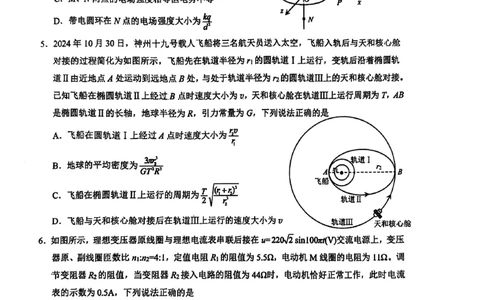 D. 带电圆环在 N 点的电场强度大小为 kq/d²
z
N
P
x
5. 2024 年 10 月 30 日，神州十九号载人飞船将三名航天员送入太空，飞船入轨后与天和核心舱
对接的过程简化为如图所示，飞船先在轨道半径为 r₁ 的圆轨道Ⅰ上运行，变轨后沿着椭圆轨
道Ⅱ由近地点 A 处运动到远地点 B 处，与处于轨道半径为 r₂ 的圆轨道Ⅲ上的天和核心舱对接。
已知飞船在椭圆轨道Ⅱ上经过 B 点时速度大小为 v，天和核心舱在轨道Ⅲ上运行周期为 T，AB
是椭圆轨道Ⅱ的长轴，地球半径为 R，引力常量为 G，下列说法正确的是
A. 飞船在圆轨道Ⅰ上经过 A 点时速度大小为 r₂v/r₁
B. 地球的平均密度为 3πr₂³/GT²R³
C. 飞船在椭圆轨道Ⅱ上运行的周期为 T/2 √((r₁+r₂)³/r₂³)
D. 飞船与天和核心舱对接后在轨道Ⅲ上运行的速度大小为 v
轨道Ⅰ
r₂
A
B
飞船
轨道Ⅱ
轨道Ⅲ
天和核心舱
6. 如图所示，理想变压器原线圈与理想电流表串联后接在 u=220√2 sin100πt(V)交流电源上，变压
器原、副线圈匝数比 n₁:n₂=4:1，定值电阻 R₁ 的阻值为 5.5Ω，电动机 M 线圈的电阻为 11Ω。调
节变阻器 R₂ 的阻值，当变阻器 R₂ 接入电路的阻值为 44Ω时，电动机恰好正常工作，此时电流
表的示数为 0.5A，下列说法正确的是